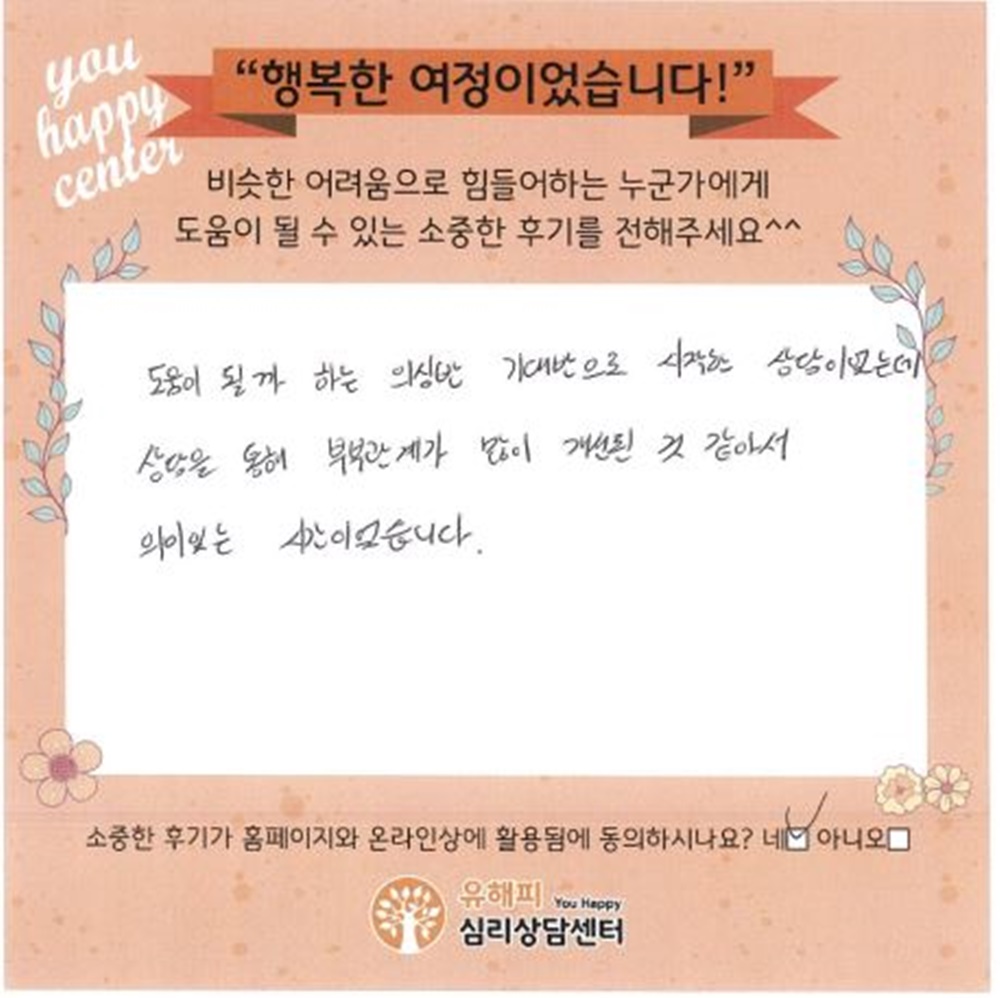 you
happy
center
“행복한 여정이었습니다!”
비슷한 어려움으로 힘들어하는 누군가에게
도움이 될 수 있는 소중한 후기를 전해주세요^^
도움이 될까 하는 의심반 기대반으로 시작한 상담이었는데
상담을 통해 부부관계가 많이 개선된 것 같아서
의미있는 시간이었습니다.
소중한 후기가 홈페이지와 온라인상에 활용됨에 동의하시나요? 네☑ 아니오☐
유해피 You Happy
심리상담센터